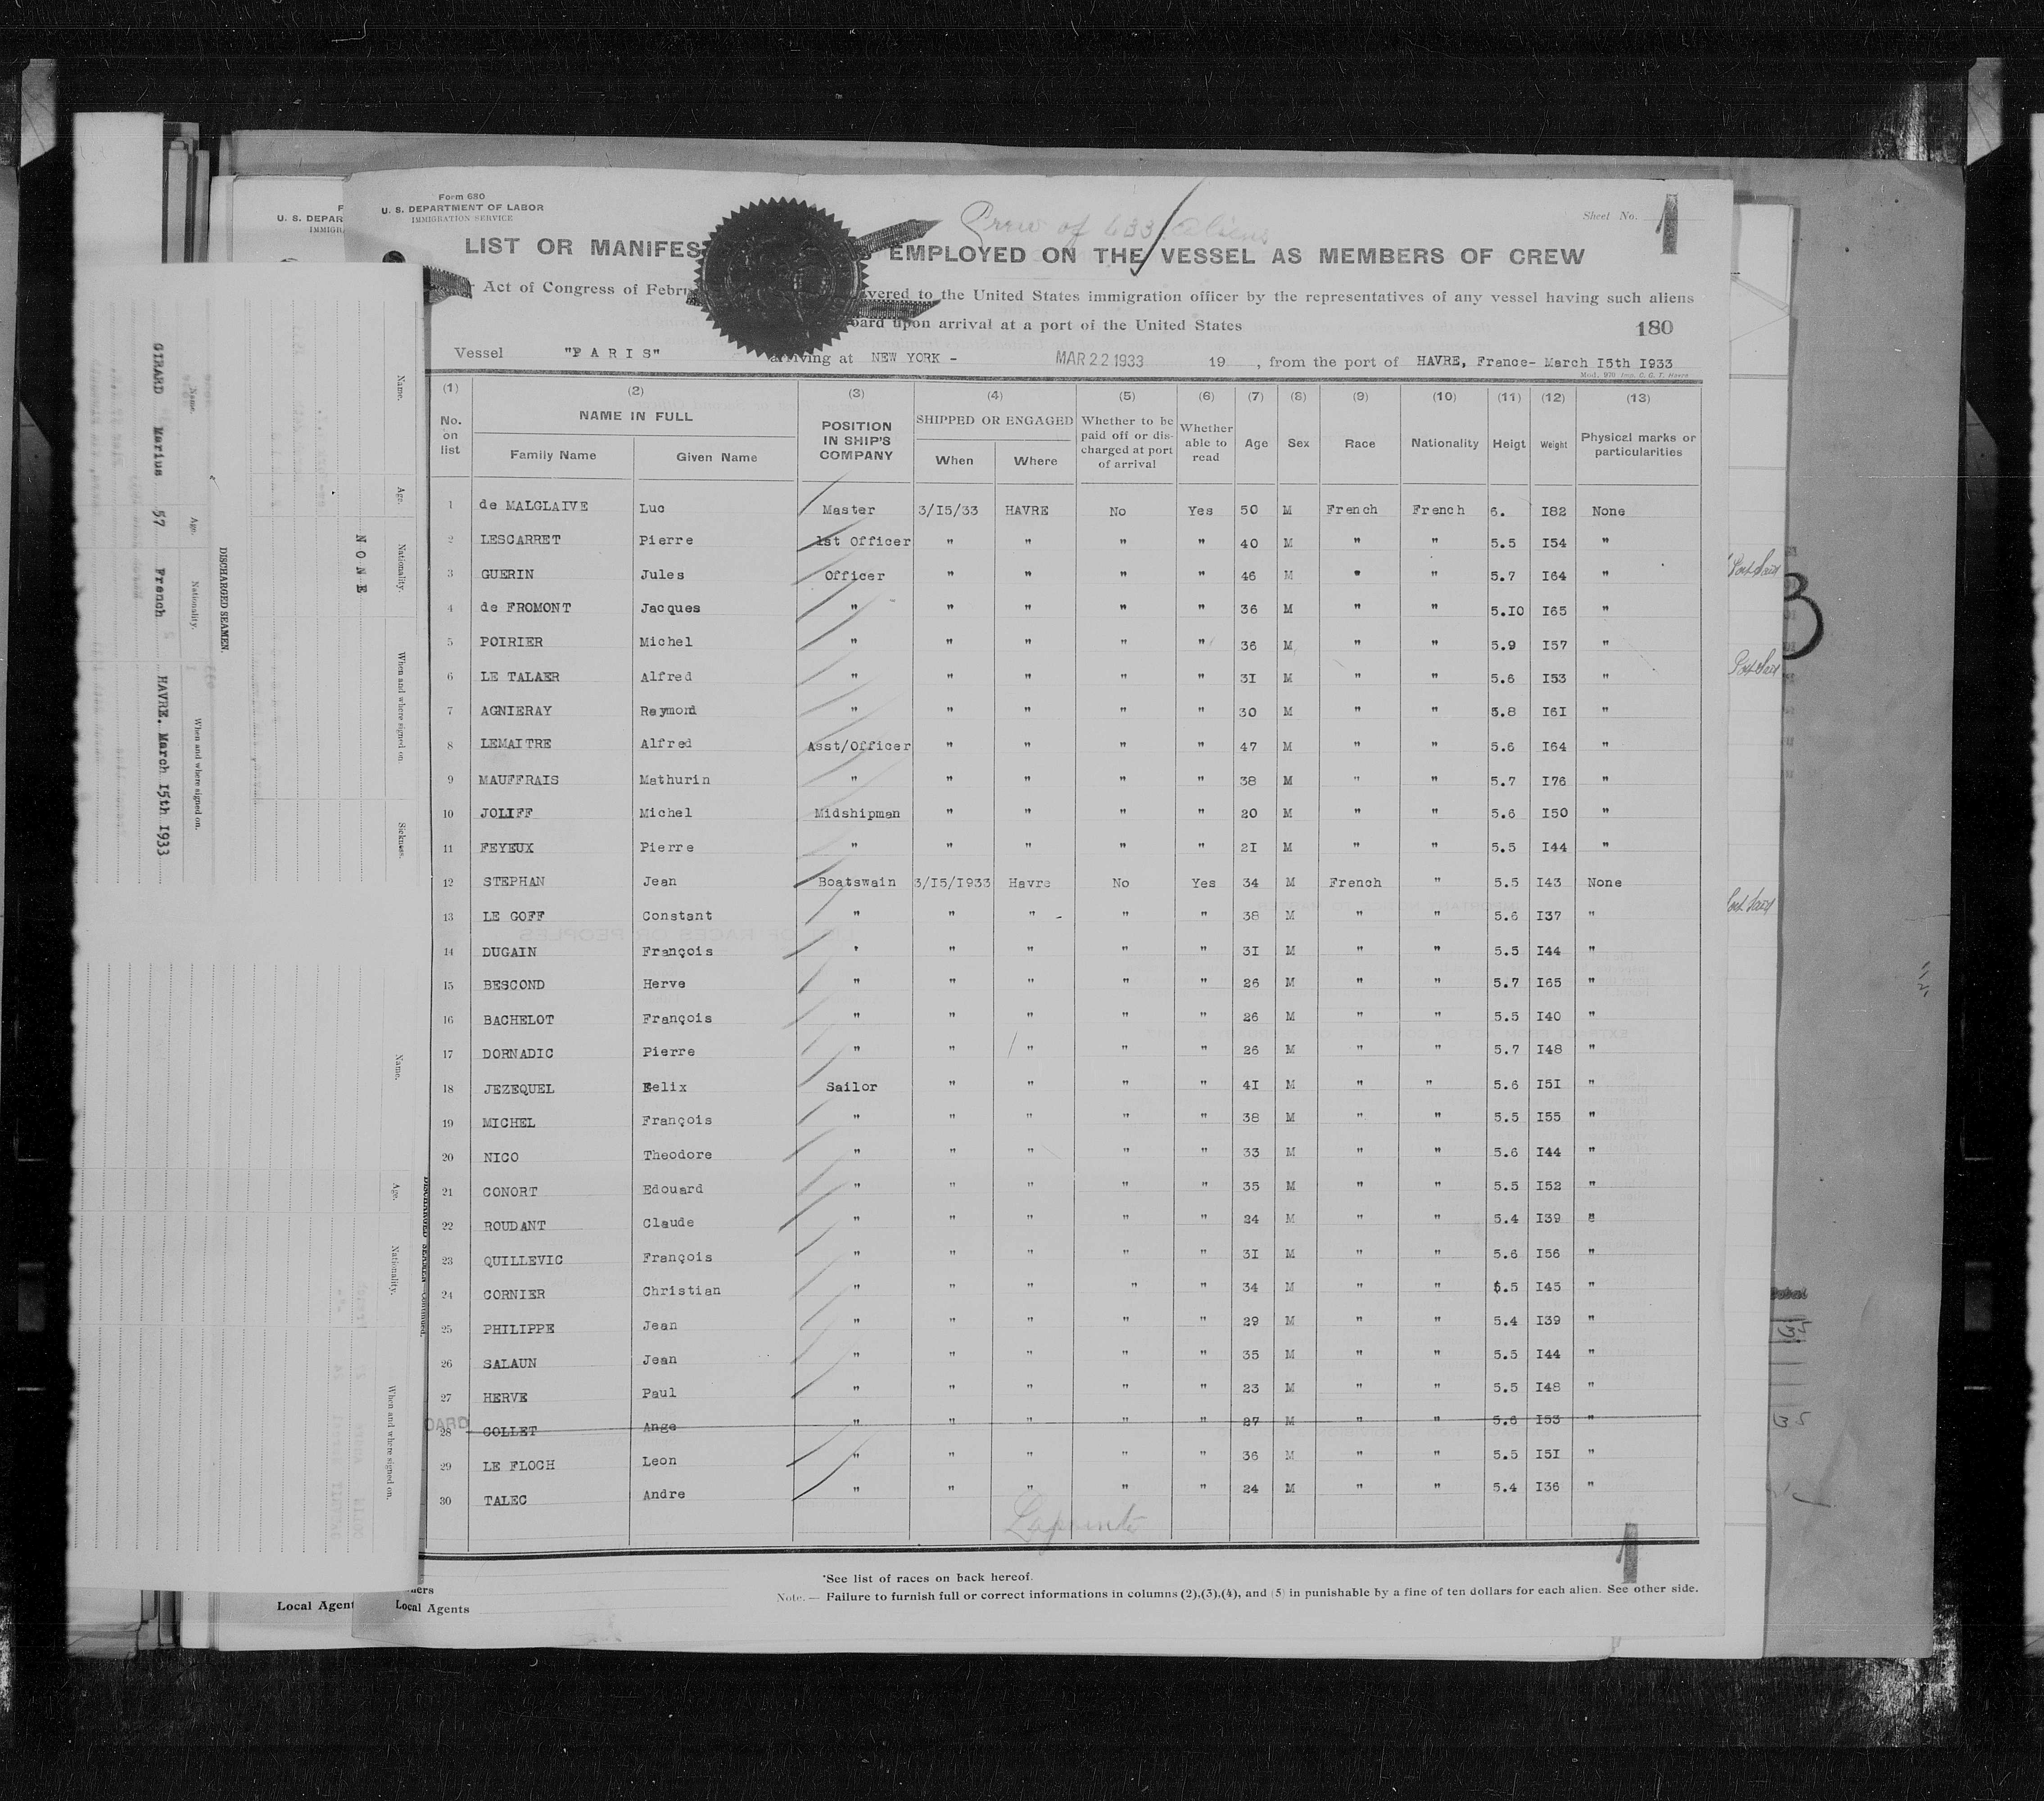 Form 680
U. S. DEPARTMENT OF LABOR
IMMIGRATION SERVICE
Sheet No. 1
Crew of 633 Aliens
LIST OR MANIFES EMPLOYED ON THE VESSEL AS MEMBERS OF CREW
Act of Congress of Febru vered to the United States immigration officer by the representatives of any vessel having such aliens
oard upon arrival at a port of the United States
180
Vessel "PARIS" arriving at NEW YORK - MAR 22 1933 19 , from the port of HAVRE, France- March I5th I933
Mod. 970 Imp. C. G. T. Havre
(1) (2) (3) (4) (5) (6) (7) (8) (9) (10) (11) (12) (13)
No. on list NAME IN FULL Family Name Given Name POSITION IN SHIP'S COMPANY SHIPPED OR ENGAGED When Where Whether to be paid off or discharged at port of arrival Whether able to read Age Sex Race Nationality Heigt Weight Physical marks or particularities
1 de MALGLAIVE Luc Master 3/I5/33 HAVRE No Yes 50 M French French 6. I82 None
2 LESCARRET Pierre 1st Officer " " " " 40 M " " 5.5 I54 "
3 GUERIN Jules Officer " " " " 46 M " " 5.7 I64 "
4 de FROMONT Jacques " " " " " 36 M " " 5.I0 I65 "
5 POIRIER Michel " " " " " 36 M " " 5.9 I57 "
6 LE TALAER Alfred " " " " " 3I M " " 5.6 I53 "
7 AGNIERAY Raymond " " " " " 30 M " " 5.8 I6I "
8 LEMAITRE Alfred Asst/Officer " " " " 47 M " " 5.6 I64 "
9 MAUFFRAIS Mathurin " " " " " 38 M " " 5.7 I76 "
10 JOLIFF Michel Midshipman " " " " 20 M " " 5.6 I50 "
11 FEYEUX Pierre " " " " " 2I M " " 5.5 I44 "
12 STEPHAN Jean Boatswain 3/I5/I933 Havre No Yes 34 M French " 5.5 I43 None
13 LE GOFF Constant " " " " " 38 M " " 5.6 I37 "
14 DUGAIN François " " " " " 3I M " " 5.5 I44 "
15 BESCOND Herve " " " " " 26 M " " 5.7 I65 "
16 BACHELOT François " " " " " 26 M " " 5.5 I40 "
17 DORNADIC Pierre " " " " " 26 M " " 5.7 I48 "
18 JEZEQUEL Felix Sailor " " " " 4I M " " 5.6 I5I "
19 MICHEL François " " " " " 38 M " " 5.5 I55 "
20 NICO Theodore " " " " " 33 M " " 5.6 I44 "
21 CONORT Edouard " " " " " 35 M " " 5.5 I52 "
22 ROUDANT Claude " " " " " 24 M " " 5.4 I39 "
23 QUILLEVIC François " " " " " 3I M " " 5.6 I56 "
24 CORNIER Christian " " " " " 34 M " " 5.5 I45 "
25 PHILIPPE Jean " " " " " 29 M " " 5.4 I39 "
26 SALAUN Jean " " " " " 35 M " " 5.5 I44 "
27 HERVE Paul " " " " " 23 M " " 5.5 I48 "
28 COLLET Ange " " " " " 27 M " " 5.6 I53 "
29 LE FLOCH Leon " " " " " 36 M " " 5.5 I5I "
30 TALEC Andre " " " " " 24 M " " 5.4 I36 "
OARD
*See list of races on back hereof.
Note. — Failure to furnish full or correct informations in columns (2),(3),(4), and (5) in punishable by a fine of ten dollars for each alien. See other side.
1
Local Agents
Local Agent
U. S. DEPAR
IMMIGR
Name. Age. Nationality. When and where signed on. Sickness.
NONE
DISCHARGED SEAMEN.
Name. Age. Nationality. When and where signed on.
GIRARD Marius 57 French HAVRE. March I5th I933
Name. Age. Nationality. When and where signed on.
Port Said
Port Said
Port Said